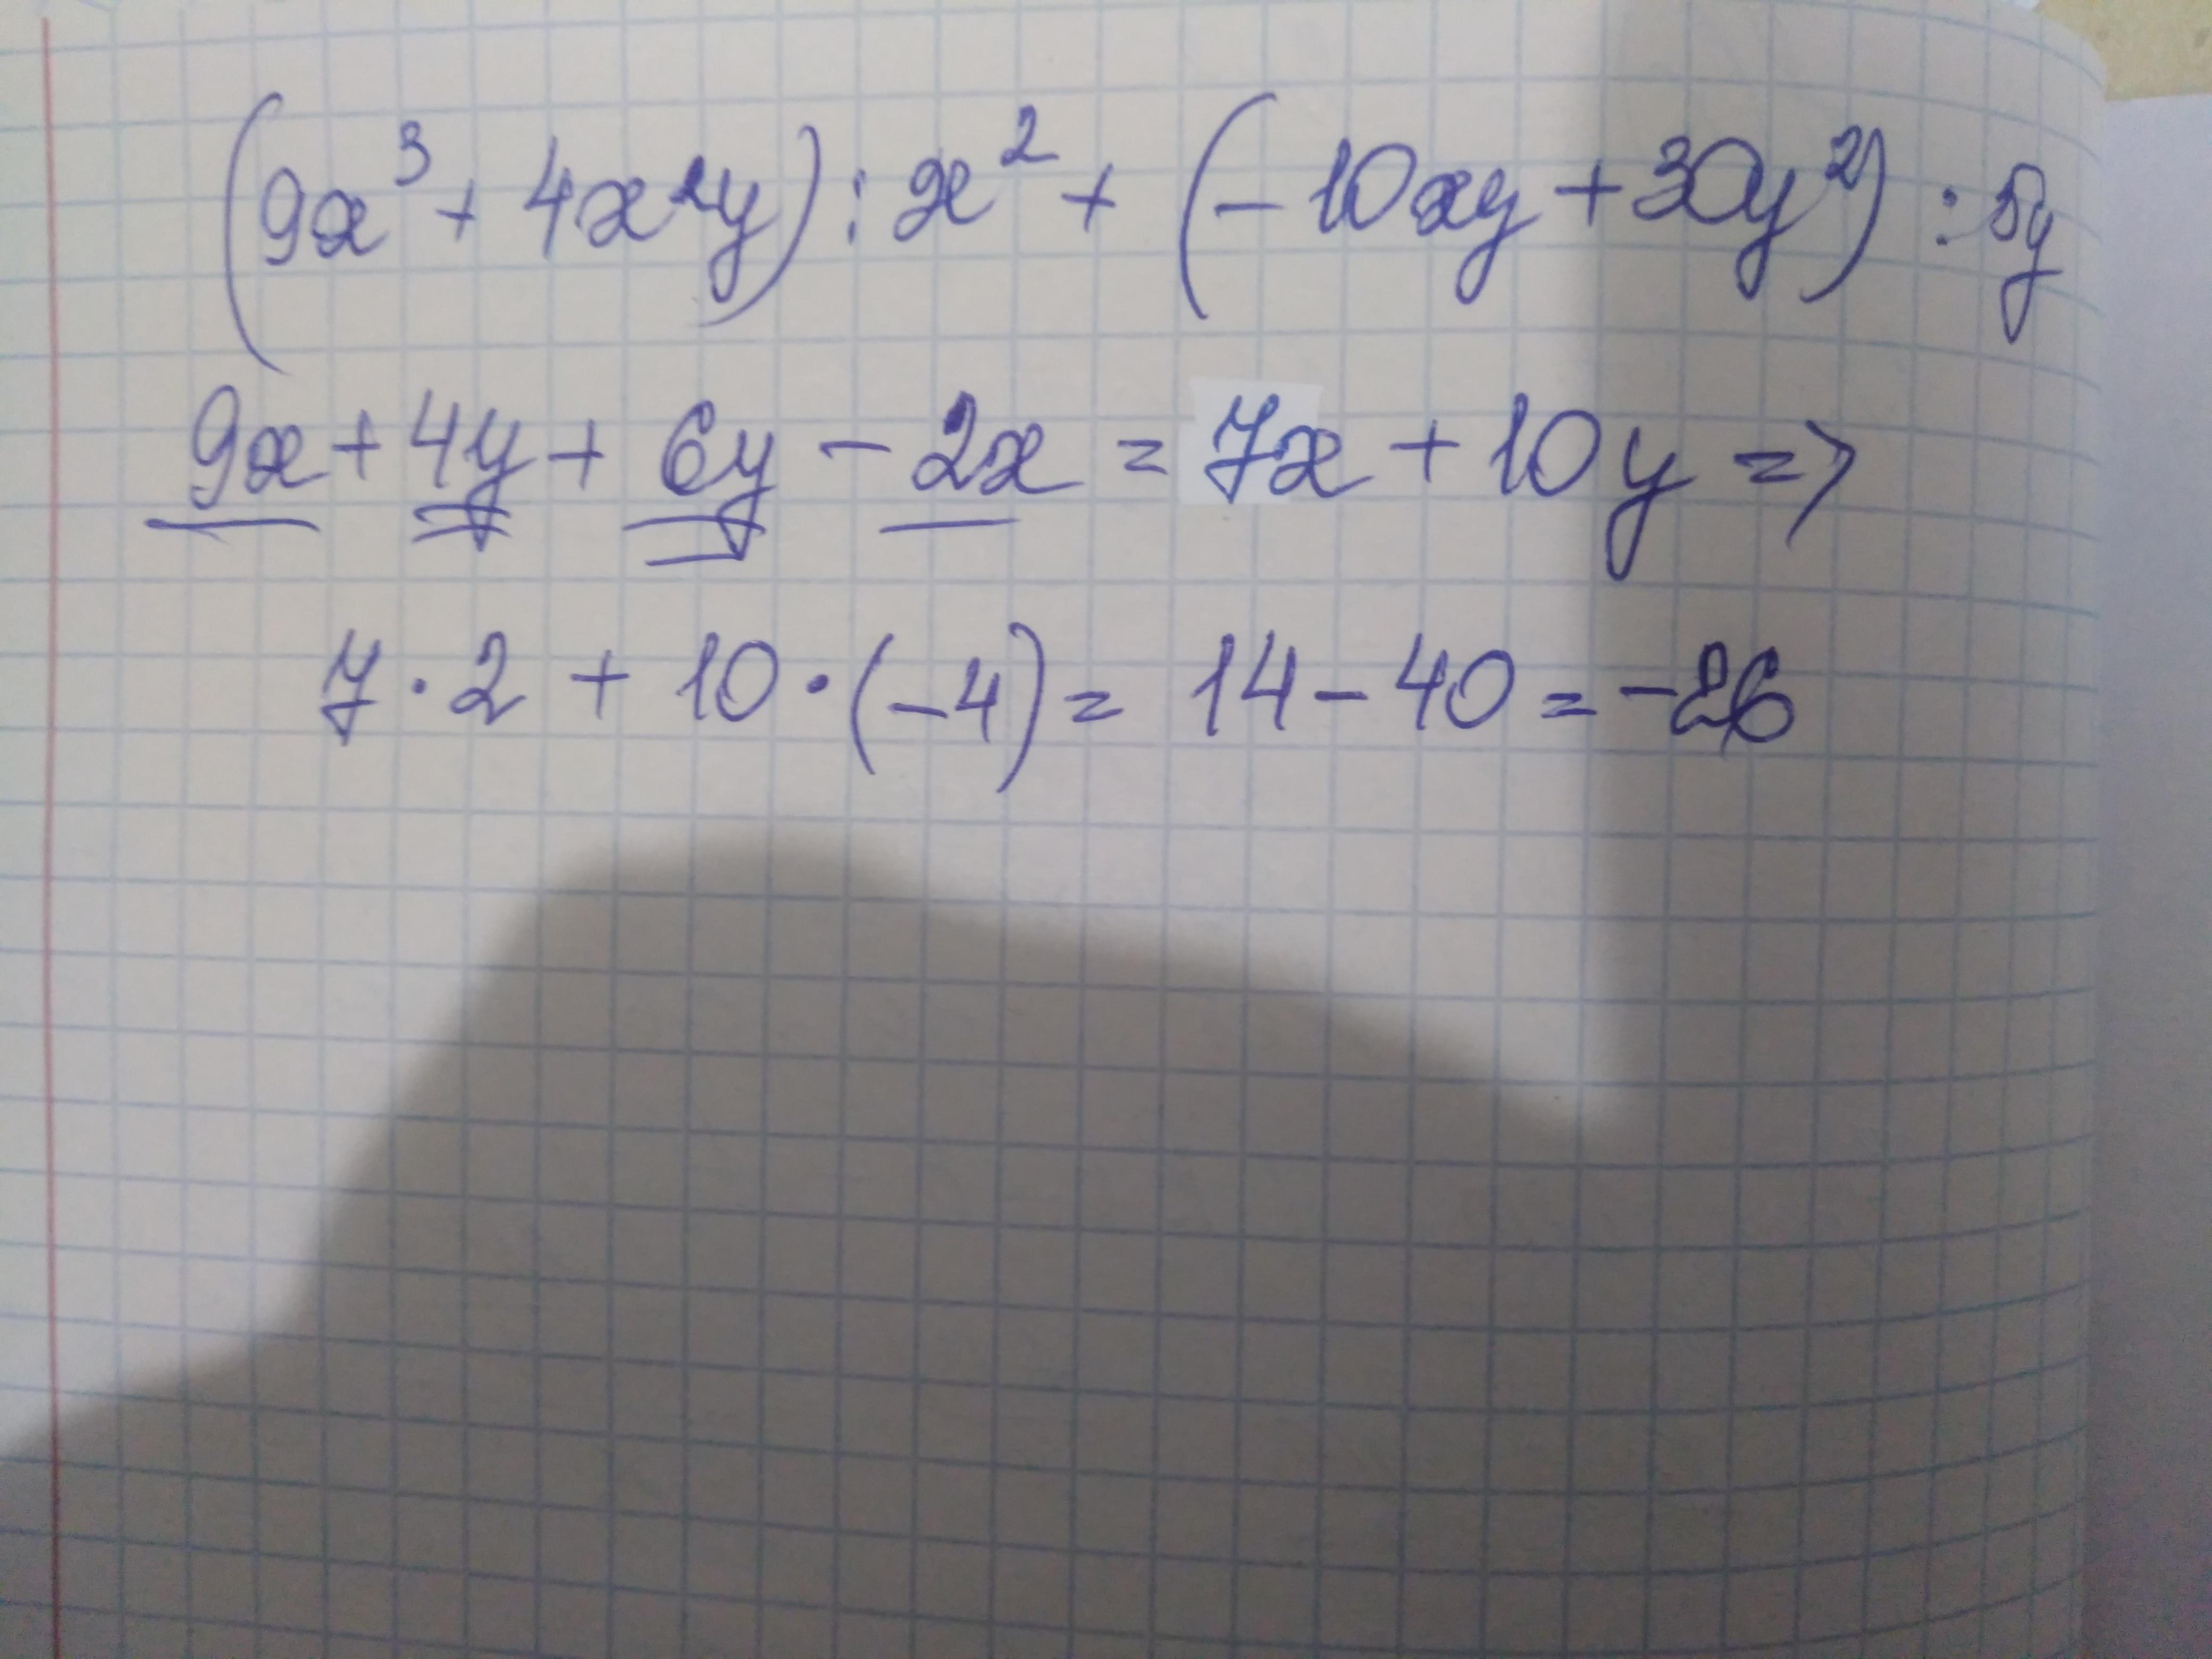 (9x³ + 4x²y) : x² + (-10xy + 30y²) : 5y
9x + 4y + 6y - 2x = 7x + 10y =>
7 · 2 + 10 · (-4) = 14 - 40 = -26